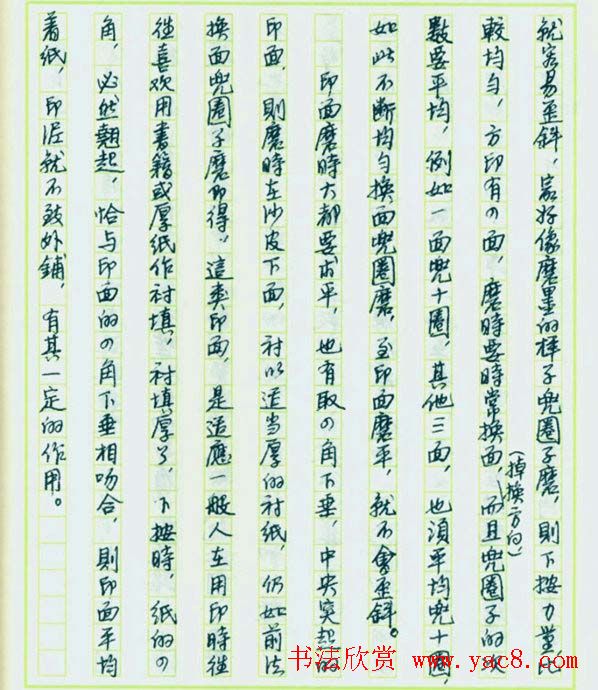 就容易歪斜，最好像磨墨的样子兜圈子磨，則下按力量比
較均匀，方印有の面，磨時要時常換面，而且兜圈子的次
(掉換方向)
數要平均，例如一面兜十圈，其他三面，也須平均兜十圈
如此不断均匀換面兜圈磨，至印面磨平，就不會歪斜。
印面磨時大都要求平，也有取の角下垂，中央突起的
印面，則磨時在沙皮下面，衬以适当厚的衬紙，仍如前法
換面兜圈子磨即得，這类印面，是适應一般人在用印時往
往喜欢用書籍或厚紙作衬填，衬填厚了，下按時，紙的の
角，必然翹起，恰与印面的の角下垂相吻合，則印面平均
着紙，印泥就不致外鋪，有其一定的作用。
书法欣赏 www.yac8.com